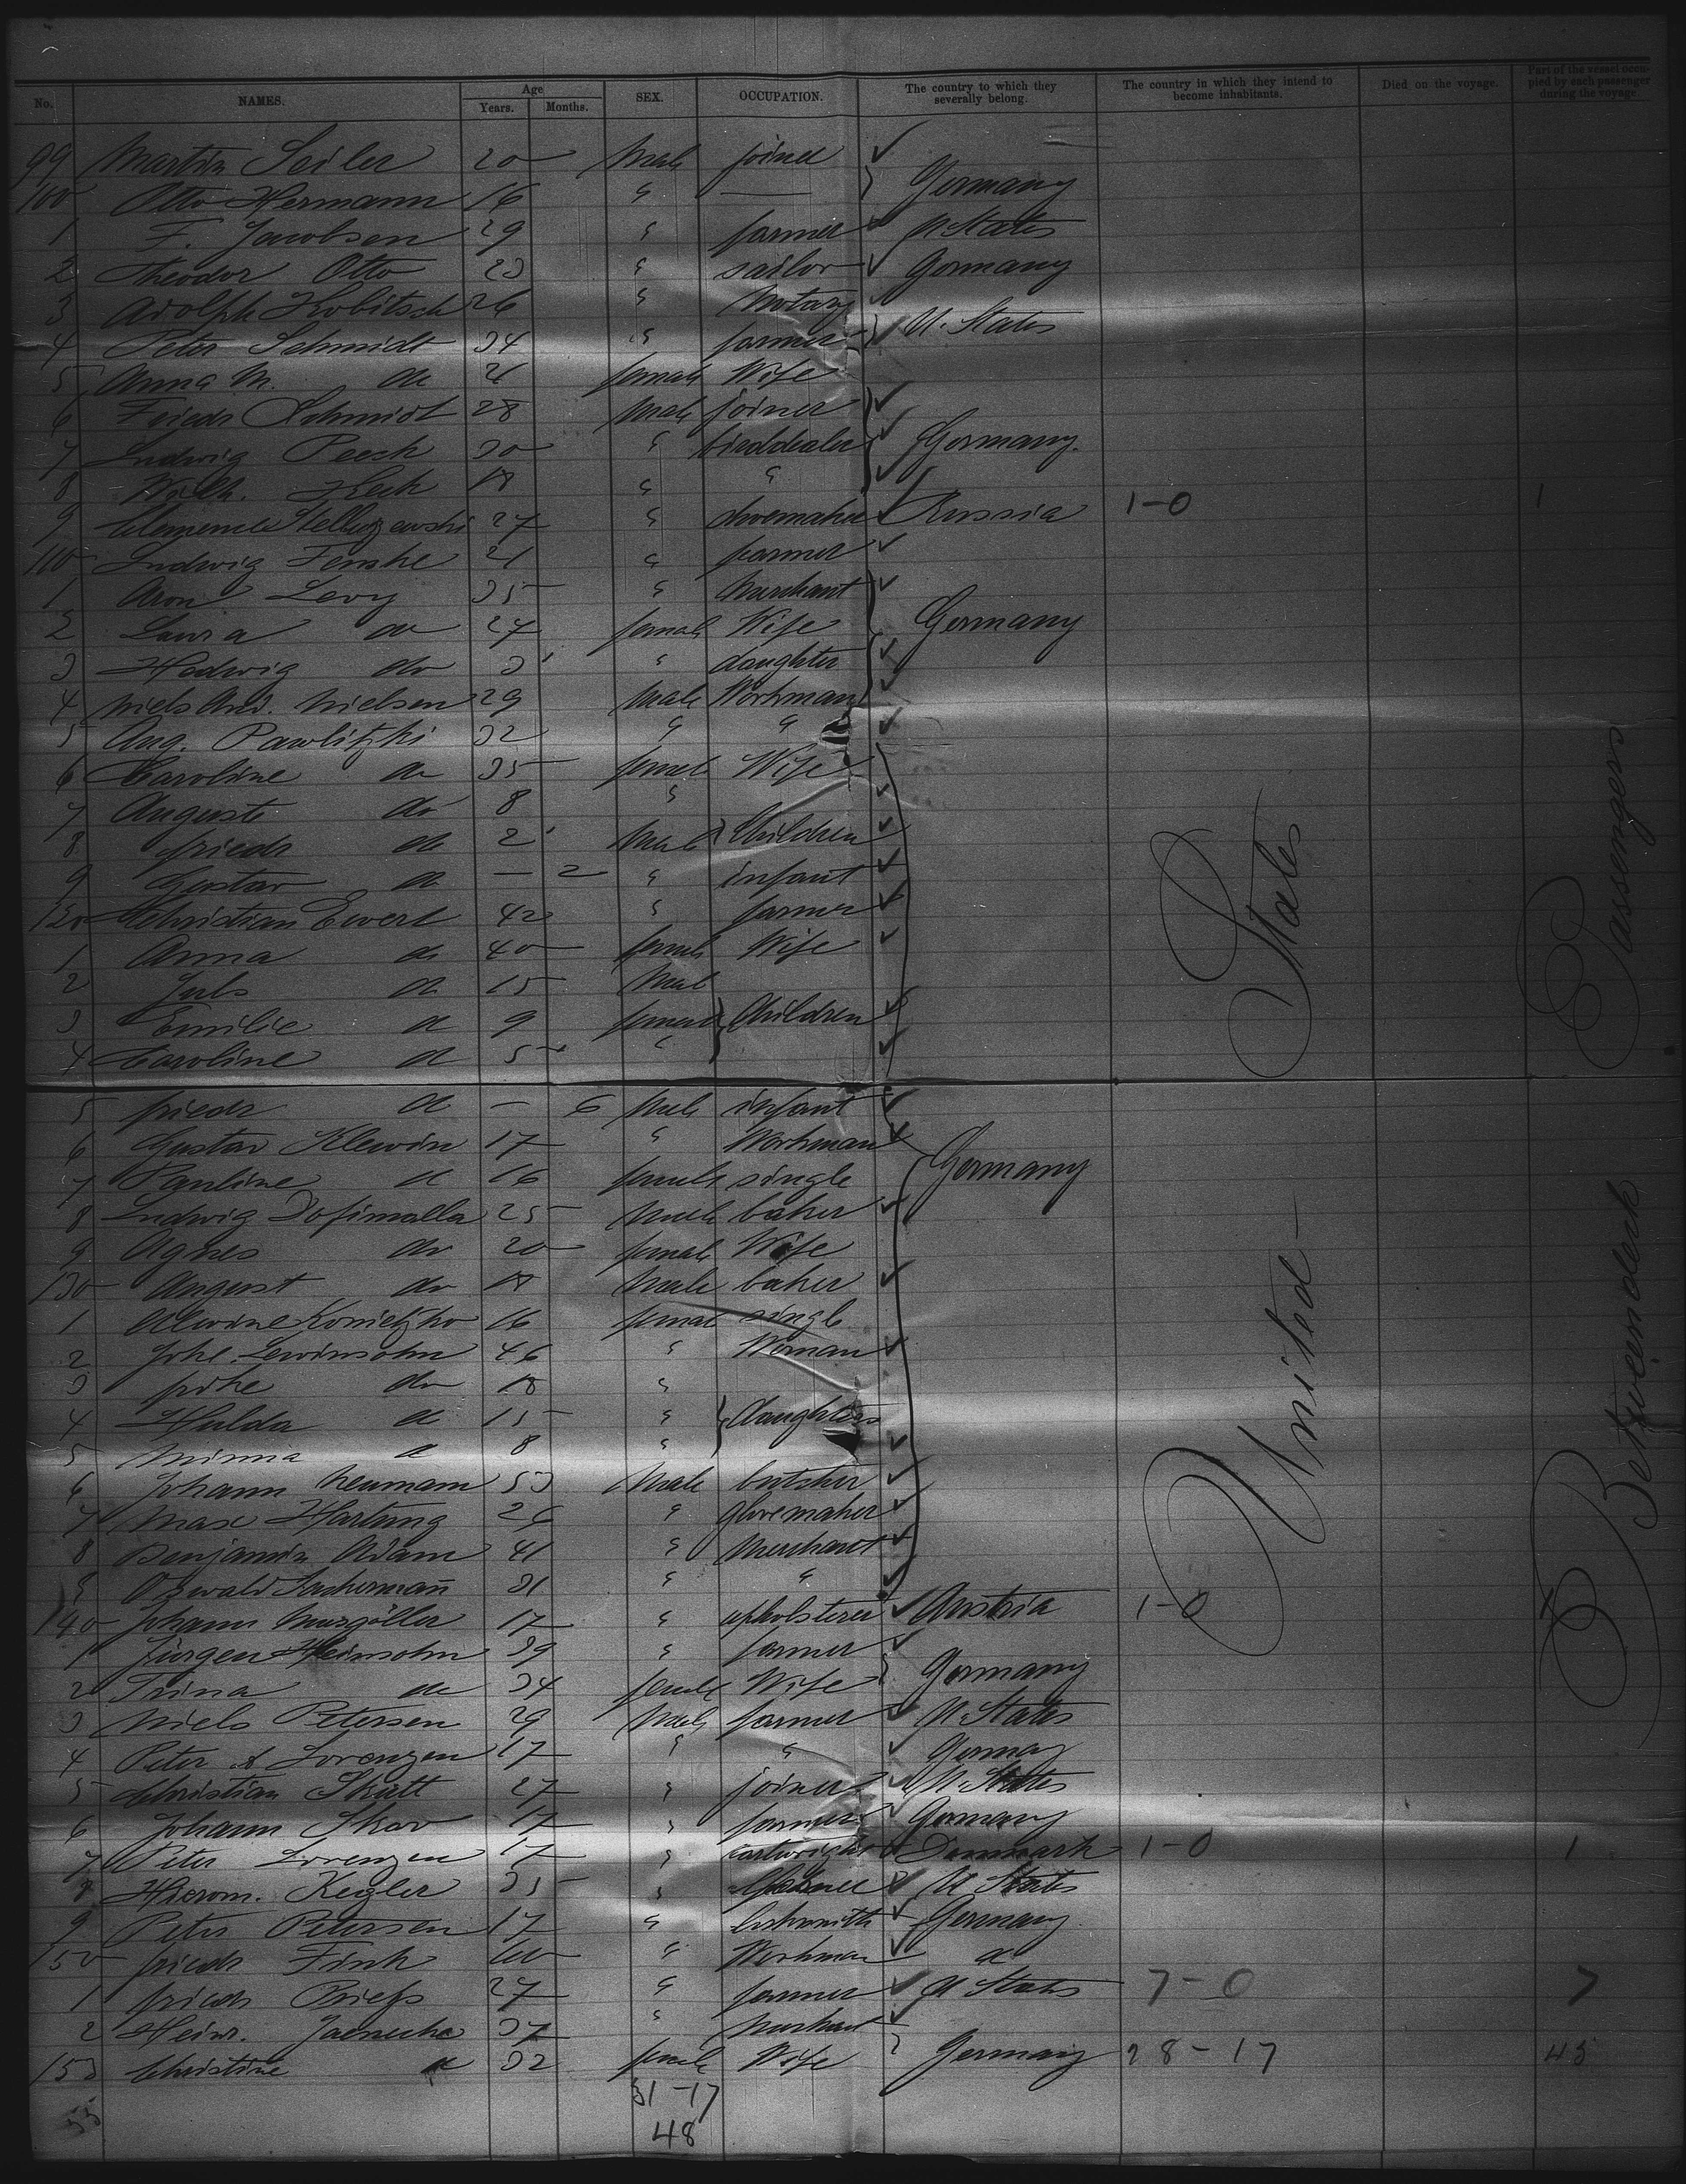 No. NAMES. Age Years. Months. SEX. OCCUPATION. The country to which they severally belong. The country in which they intend to become inhabitants. Died on the voyage. Part of the vessel occupied by each passenger during the voyage
99 Martin Seiler 20 Male joiner
100 Otto Hermann 16 " — Germany
1 F. Jacobsen 29 " farmer U States
2 Theodor Otto 23 " sailor Germany
3 Adolph Kobitsch 26 " Notary
4 Peter Schmidt 34 " farmer U. States
5 Anna M. do 21 female Wife
6 Friedr Schmidt 28 Male joiner
7 Ludwig Peesk 30 " birddealer Germany.
8 Wilh. Kech 18 " "
9 27 " shoemaker Russia 1-0 1
110 Ludwig Fenske 21 " farmer
1 Aron Levy 35 " Merchant
2 Laura do 27 female Wife Germany
3 Hedwig do 3 " daughter
4 Niels And. Nielsen 29 Male Workman
5 Aug. Pawlitzki 32 " "
6 Caroline do 35 female Wife
7 Auguste do 8 "
8 friedr do 2 Male Children
9 Gustav do — 2 " infant
120 Christian Ewert 42 " farmer
1 Anna do 40 female Wife
2 Juls do 15 Male
3 Emilie do 9 female Children
4 Caroline do 5 "
States
Passengers
5 friedr do — 6 Male infant
6 Gustav Klewin 17 " Workman
7 Pauline do 16 female single Germany
8 Ludwig 25 Male baker
9 Agnes do 20 female Wife
130 August do 18 Male baker
1 Alwine Konietzko 16 female single
2 Lewinsohn 46 " Woman
3 do 18 "
4 Hulda do 15 " daughters
5 Minna do 8 "
6 Johann Neumann 53 Male butcher
7 Max Hartung 26 " glovemaker
8 Benjamin Adam 41 " Merchant
9 Oswald 31 " "
140 Johann 17 " upholsterer Austria 1-0
1 Jürgen Heinsohn 39 " farmer
2 Trina do 34 female Wife Germany
3 Niels Petersen 29 Male farmer U. States
4 Peter A Lorenzen 17 " " Germany
5 Christian Skutt 27 " joiner U. States
6 Johann Skov 17 " farmer Germany
7 Peter Lorenzen 17 " cartwright Denmark 1-0 1
8 Hierom. Kegler 35 " U States
9 Peter Petersen 17 " Germany
150 friedr Fink 60 " Workman do
1 friedr Priess 27 " farmer U States 7-0 7
2 Heinr. Jaenecke 37 " Merchant
153 Christine do 32 female Wife Germany 28-17 45
United
Betweendeck
31-17
55
48